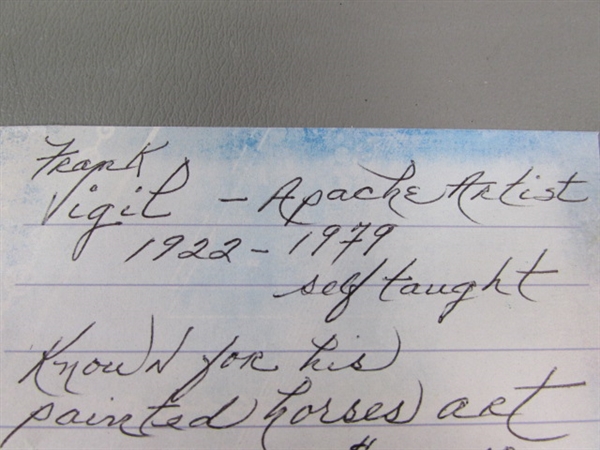 Frank
Vigil - Apache Artist
1922 - 1979
self taught
Known for his
painted horses art